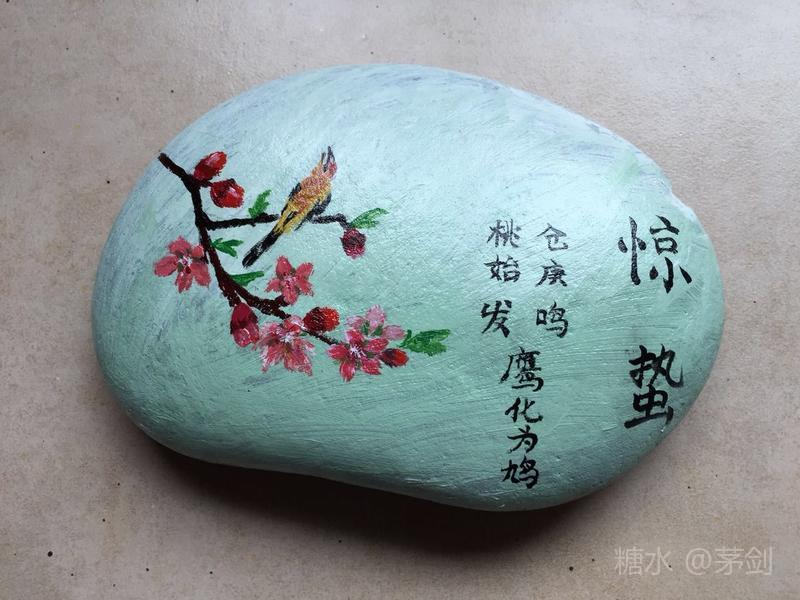 惊蛰
仓庚鸣
桃始发
鹰化为鸠
糖水 @茅剑